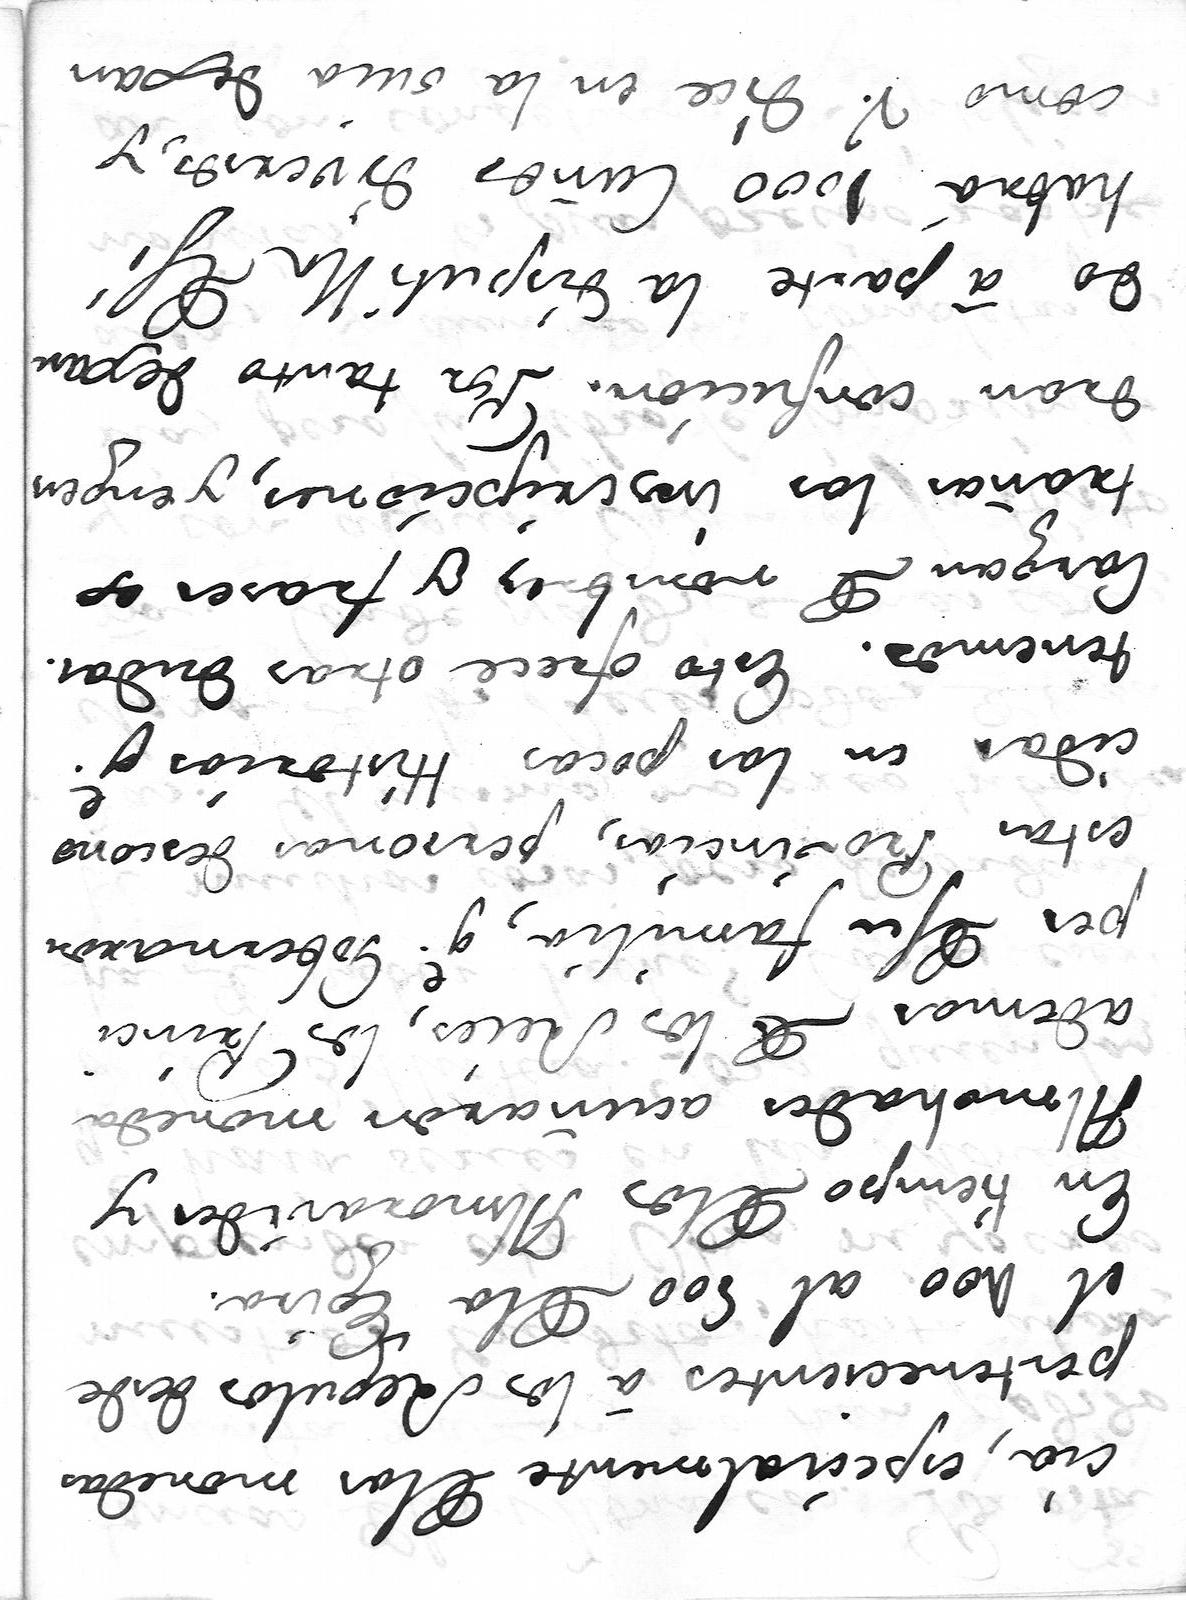 cia, especialmente de las monedas
pertenecientes à los Regulos desde
el 400 al 500 de la Egira.
En tiempo de los Almoravides y
Almohades acuñaron moneda
ademas de los Reies, los Princi
pes de su familia, q.e Gobernaron
estas Provincias, personas descono
cidas en las pocas Historias q.e
tenemos. Esto ofrece otras dudas.
Cargan de nombres, y frases es
trañas las inscripciones, y engen
dran confucion. Por tanto dexan
do à parte la disputilla de si
habrá 1000 Cuños diversos, y
como V. dice en la suia dexan